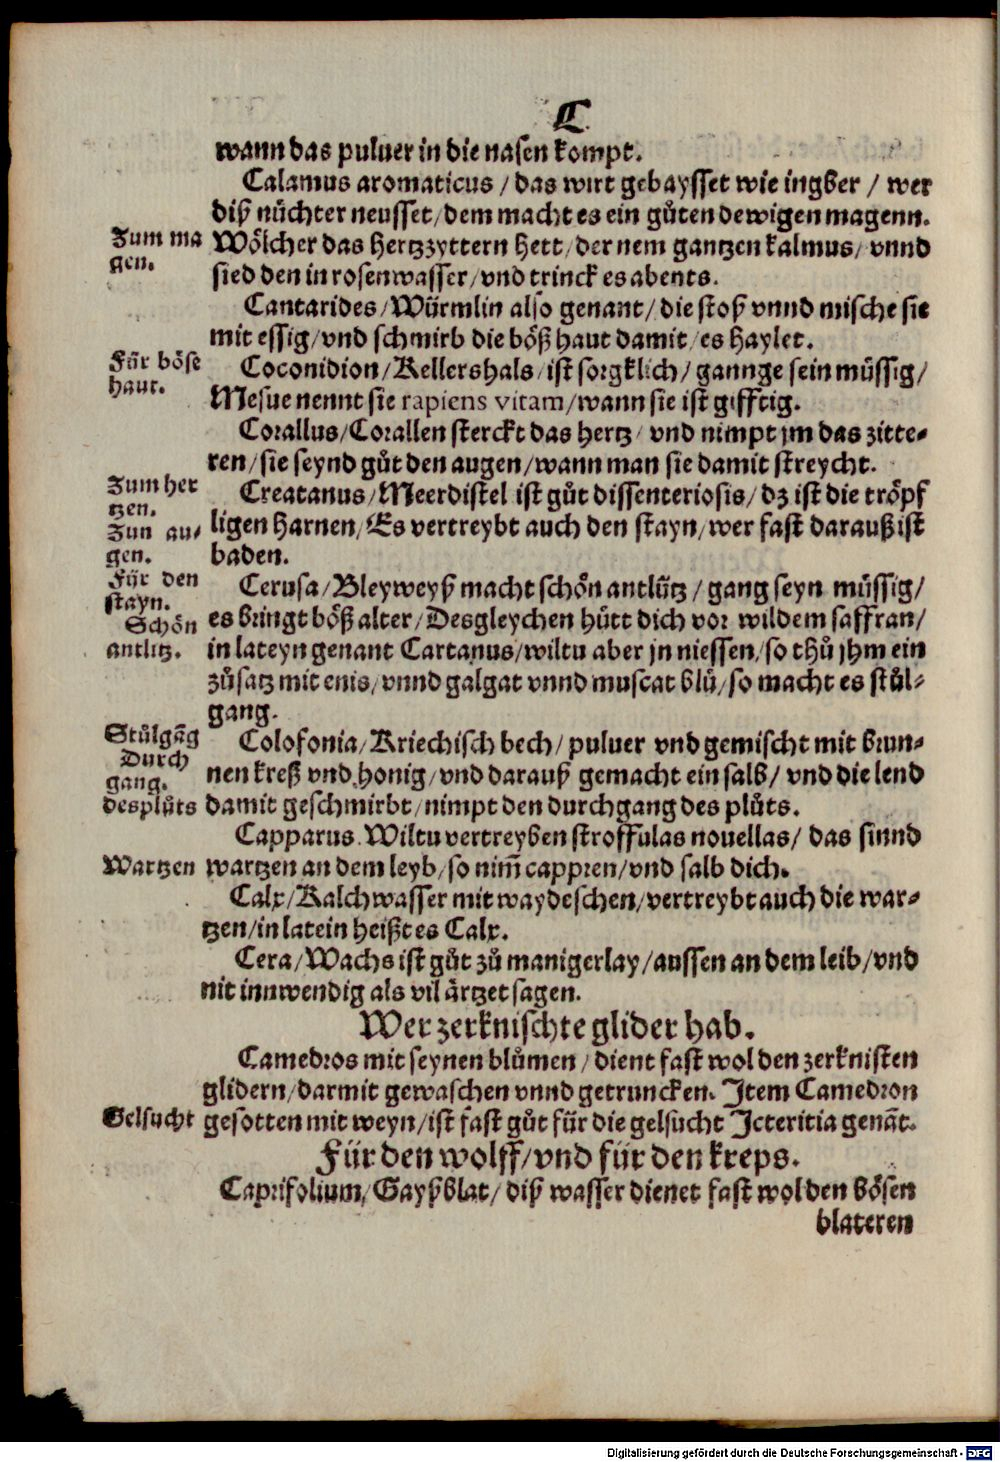 C
wann das puluer in die nasen kompt.
Calamus aromaticus / das wirt gebaysset wie ingber / wer
diß nüchter neusset / dem macht es ein gůten dewigen magenn.
Zum ma
gen.
Wölcher das hertzzyttern hett / der nem gantzen kalmus / vnnd
sied den in rosenwasser / vnd trinck es abents.
Cantarides / Würmlin also genant / die stoß vnnd mische sie
mit essig / vnd schmirb die böß haut damit / es haylet.
Für böse
haut.
Coconidion / Kellershals / ist sorgklich / gannge sein müssig /
Mesue nennt sie rapiens vitam / wann sie ist gifftig.
Corallus / Corallen sterckt das hertz / vnd nimpt jm das zitte⸗
ren / sie seynd gůt den augen / wann man sie damit streycht.
Zum her
tzen.
Zun au⸗
gen.
Creatanus / Meerdistel ist gůt dissenteriosis / dz ist die tröpf
ligen harnen / Es vertreybt auch den stayn / wer fast darauß ist
baden.
Für den
stayn.
Schön
antlitz.
Cerusa / Bleyweyß macht schön antlütz / gang seyn müssig /
es bringt böß alter / Desgleychen hütt dich vor wildem saffran /
in lateyn genant Cartanus / wiltu aber jn niessen / so thů jhm ein
zůsatz mit enis / vnnd galgat vnnd muscat blů / so macht es stůl⸗
gang.
Stůlgāg
Durch
gang.
des plůts
Colofonia / Kriechisch bech / puluer vnd gemischt mit brun⸗
nen kreß vnd honig / vnd darauß gemacht ein salb / vnd die lend
damit geschmirbt / nimpt den durchgang des plůts.
Capparus. Wiltu vertreyben stroffulas nouellas / das sinnd
Wartzen
wartzen an dem leyb / so nim̄ cappren / vnd salb dich.
Calx / Kalchwasser mit waydeschen / vertreybt auch die war⸗
tzen / in latein heißt es Calx.
Cera / Wachs ist gůt zů manigerlay / aussen an dem leib / vnd
nit innwendig als vil ärtzet sagen.
Wer zerknischte glider hab.
Camedros mit seynen blůmen / dient fast wol den zerknisten
glidern / darmit gewaschen vnnd getruncken. Item Camedron
Gelsucht
gesotten mit weyn / ist fast gůt für die gelsucht Icteritia genāt.
Für den wolff / vnd für den kreps.
Caprifolium / Gayßblat / diß wasser dienet fast wol den bösen
blateren
Digitalisierung gefördert durch die Deutsche Forschungsgemeinschaft - DFG